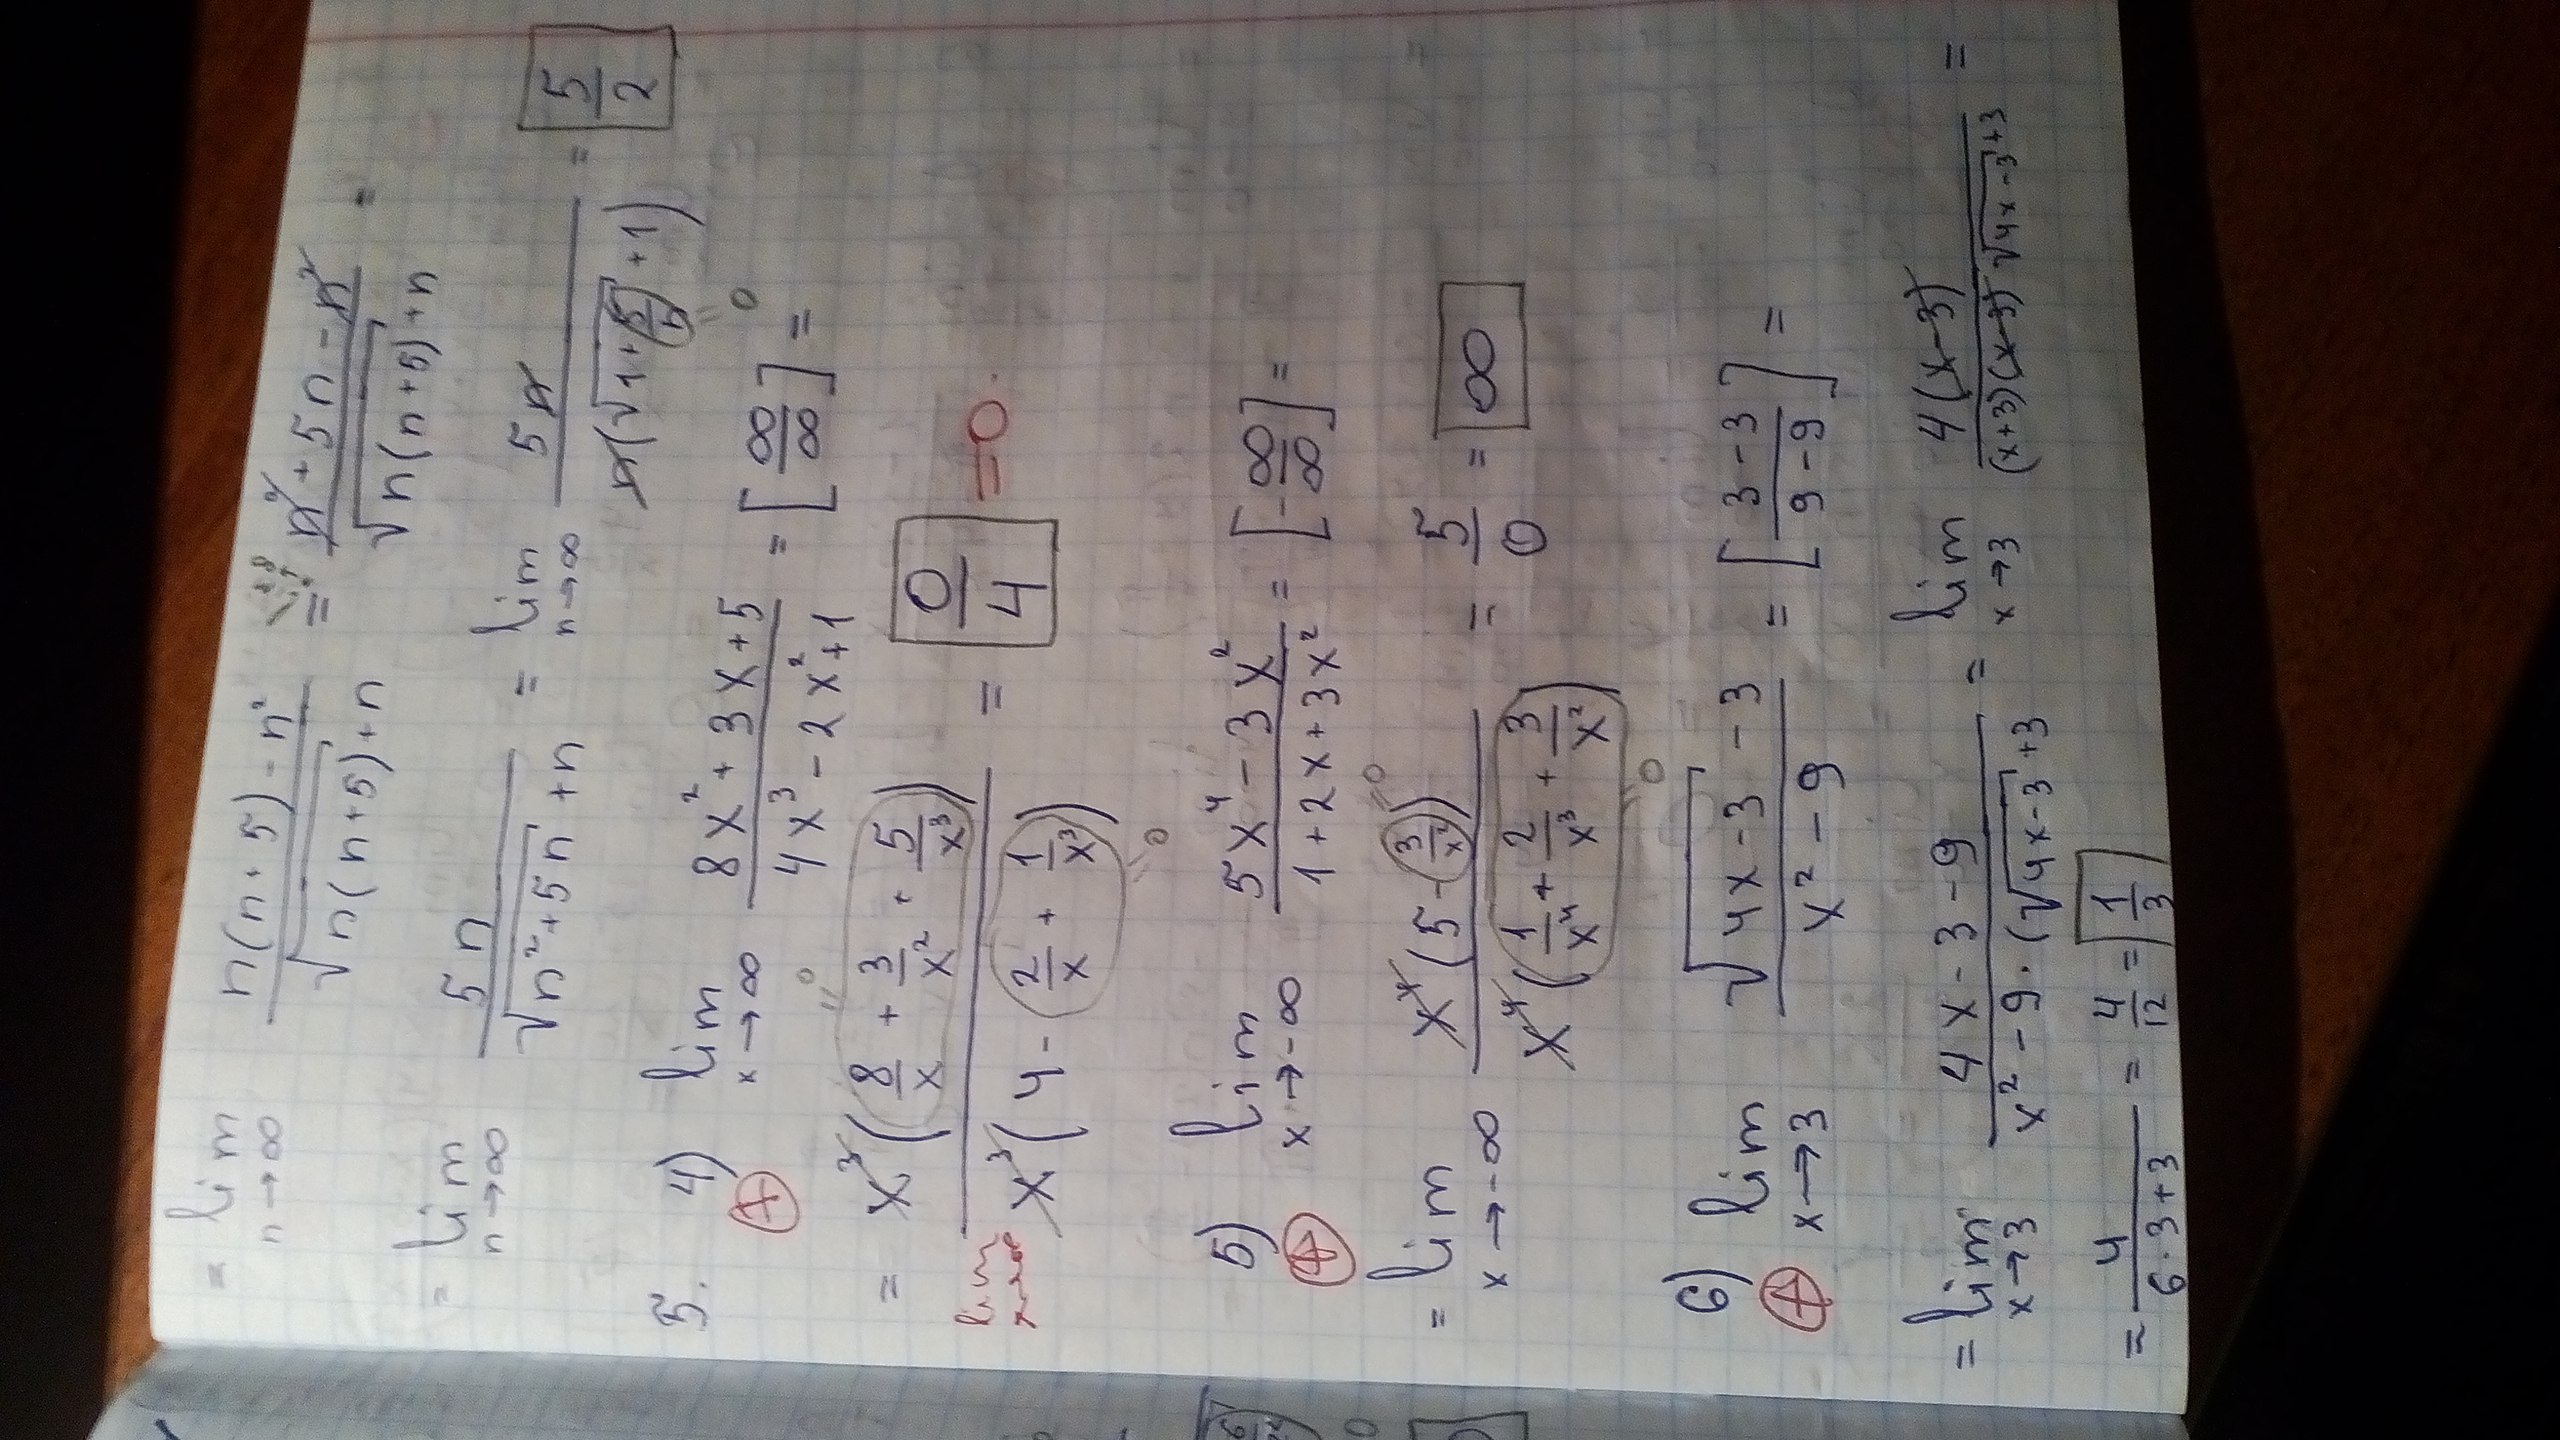 = lim n→∞ (n(n+5) - n²)/(√(n(n+5)) + n) = lim n→∞ (n² + 5n - n²)/(√(n(n+5)) + n) =
= lim n→∞ 5n/(√(n²+5n) + n) = lim n→∞ 5n/(n(√(1+5/n) + 1)) = 5/2
= 0
5. 4) lim x→∞ (8x² + 3x + 5)/(4x³ - 2x² + 1) = [∞/∞] =
+
= 0
= lim x→∞ x³(8/x + 3/x² + 5/x³)/(x³(4 - 2/x + 1/x³)) = 0/4 = 0.
= 0
5) lim x→-∞ (5x⁴ - 3x²)/(1 + 2x + 3x²) = [-∞/∞] =
+
= 0
= lim x→-∞ x⁴(5 - 3/x²)/(x⁴(1/x⁴ + 2/x³ + 3/x²)) = 5/0 = ∞
= 0
6) lim x→3 (√(4x-3) - 3)/(x² - 9) = [(3-3)/(9-9)] =
+
= lim x→3 (4x - 3 - 9)/(x² - 9 · (√(4x-3) + 3) = lim x→3 4(x-3)/((x+3)(x-3) √(4x-3) + 3) =
= 4/(6·3+3) = 4/12 = 1/3